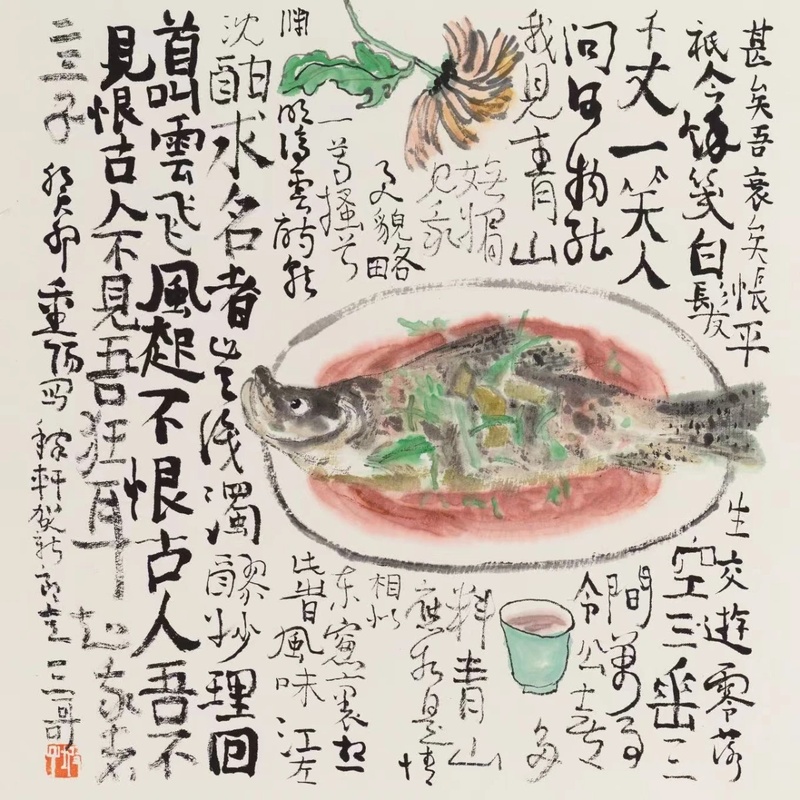 甚矣吾衰矣悵平
生交遊零落
祇今餘笺白髮
空三垂三
千丈一笑人
間萬事
問何物能
令公喜
我見青山
多
嫵媚
料青山
見我
應如是情
与貌略
相似
一尊搔首
东窻裏想
渊
明停雲詩就
此時風味江左
沈酣求名者岂識濁醪妙理回
首叫雲飞風起不恨古人吾不
見恨古人不見吾狂耳知我者
二三子
癸卯重陽写稼軒賀新郎意三哥